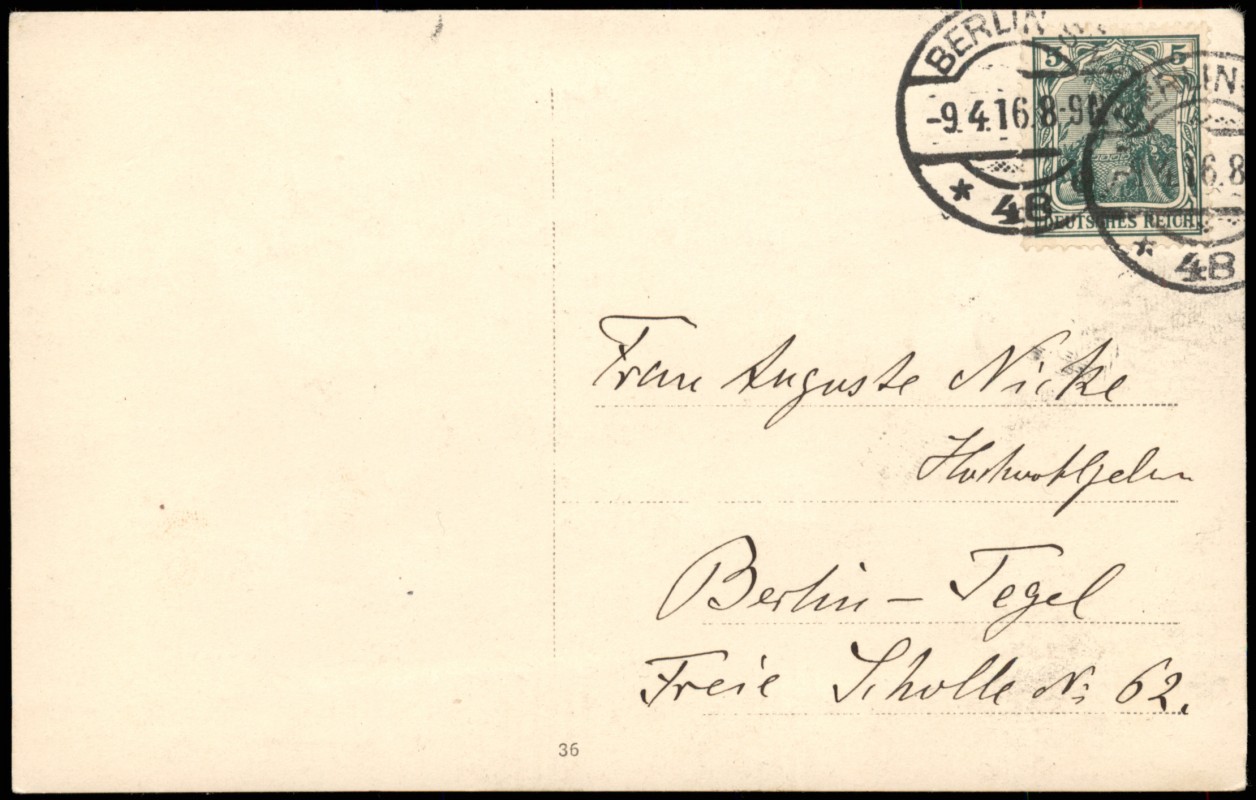 BERLIN SW
-9.4.16.8-9N
* 48
5 5
DEUTSCHES REICH
BERLIN
16.8
* 48
Frau Auguste Nicke
Hochwohlgeborn
Berlin – Tegel
Freie Scholle No 62.
36